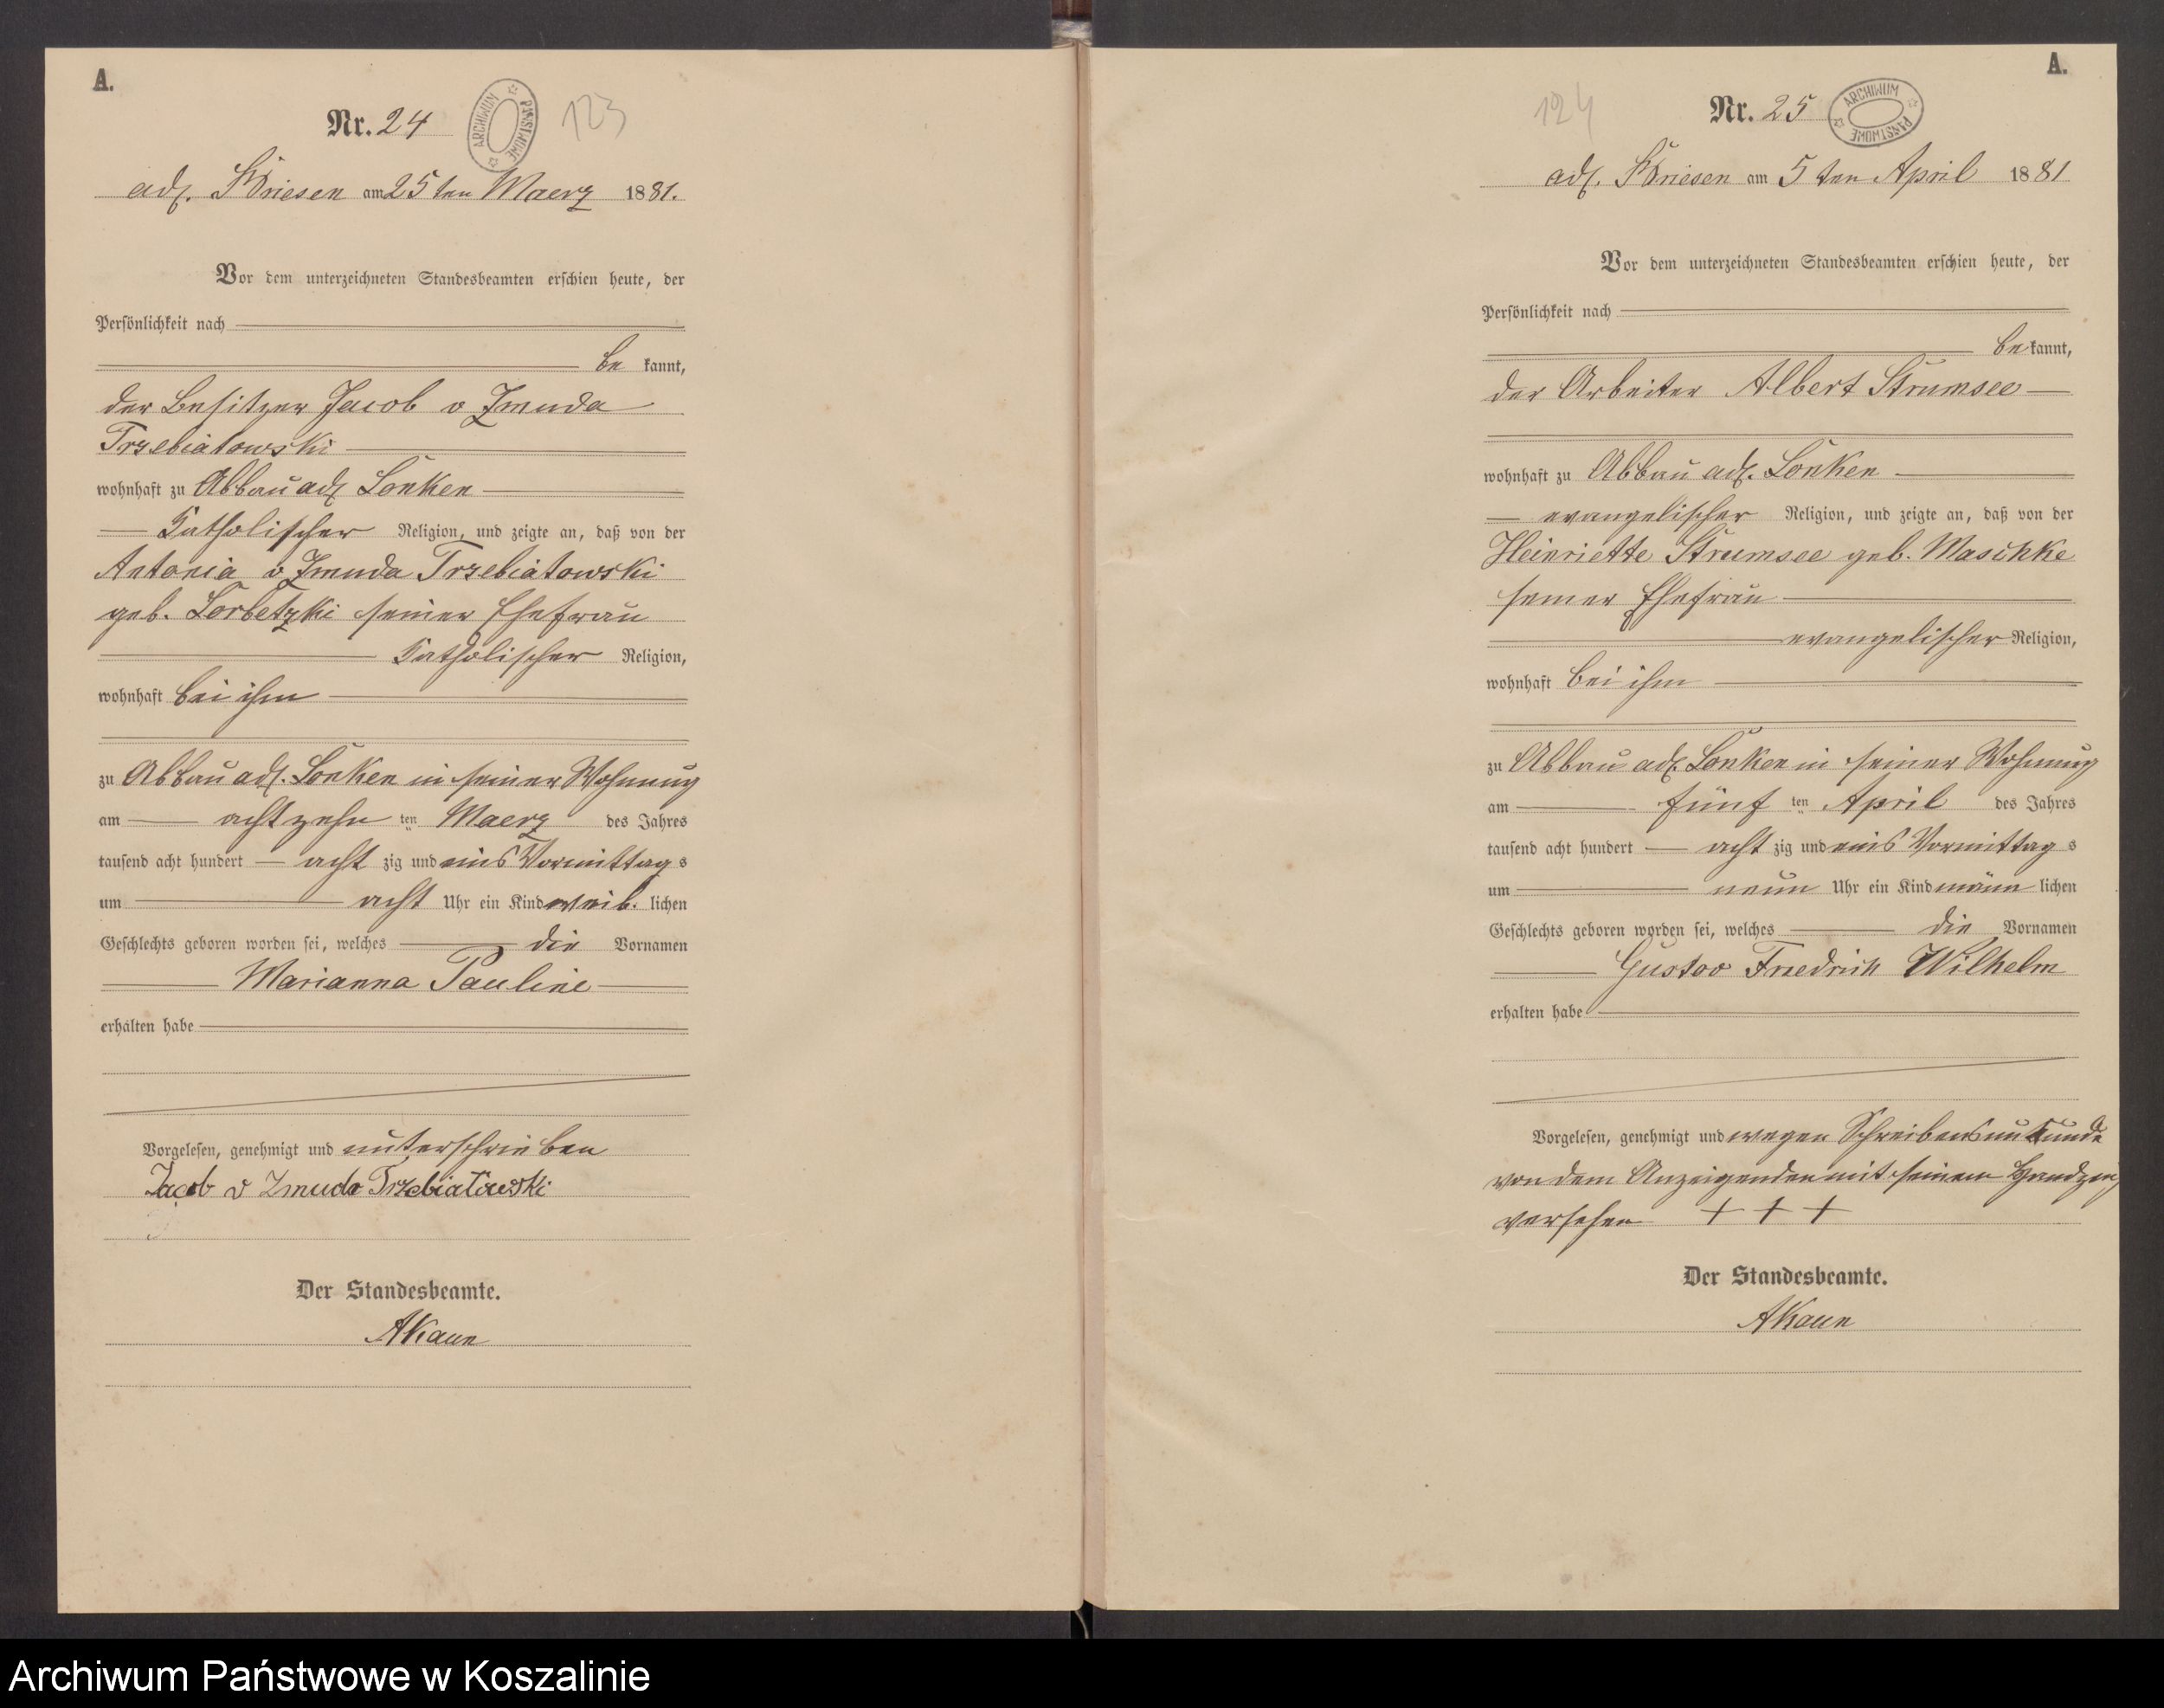 A.
Nr. 24
ARCHIWUM PAŃSTWOWE
123
adl. Briesen am 25 ten Maerz 1881.
Vor dem unterzeichneten Standesbeamten erschien heute, der
Persönlichkeit nach
be kannt,
der Besitzer Jacob v Zmuda
Trzebiatowski
wohnhaft zu Abbau adl Lonken
Katholischer Religion, und zeigte an, daß von der
Antonia v Zmuda Trzebiatowski
geb. seiner Ehefrau
Katholischer Religion,
wohnhaft bei ihm
zu Abbau adl. Lonken in seiner Wohnung
am achtzehn ten Maerz des Jahres
tausend acht hundert acht zig und eins Vormittag s
um acht Uhr ein Kind weib. lichen
Geschlechts geboren worden sei, welches die Vornamen
Marianna Pauline
erhalten habe
Vorgelesen, genehmigt und unterschrieben
Jacob v Zmuda Trzebiatowski
Der Standesbeamte.
AKaun
A.
Nr. 25
ARCHIWUM PAŃSTWOWE
124
adl. Briesen am 5 ten April 1881
Vor dem unterzeichneten Standesbeamten erschien heute, der
Persönlichkeit nach
be kannt,
der Arbeiter Albert Strumsee
wohnhaft zu Abbau adl. Lonken
evangelischer Religion, und zeigte an, daß von der
Heinriette Strumsee geb. Maschke
seiner Ehefrau
evangelischer Religion,
wohnhaft bei ihm
zu Abbau adl. Lonken in seiner Wohnung
am fünf ten April des Jahres
tausend acht hundert acht zig und eins Vormittag s
um neun Uhr ein Kind männ lichen
Geschlechts geboren worden sei, welches die Vornamen
Gustav Friedrich Wilhelm
erhalten habe
Vorgelesen, genehmigt und wegen Schreibensunkunde
von dem Anzeigenden mit seinem
versehen + + +
Der Standesbeamte.
AKaun
Archiwum Państwowe w Koszalinie